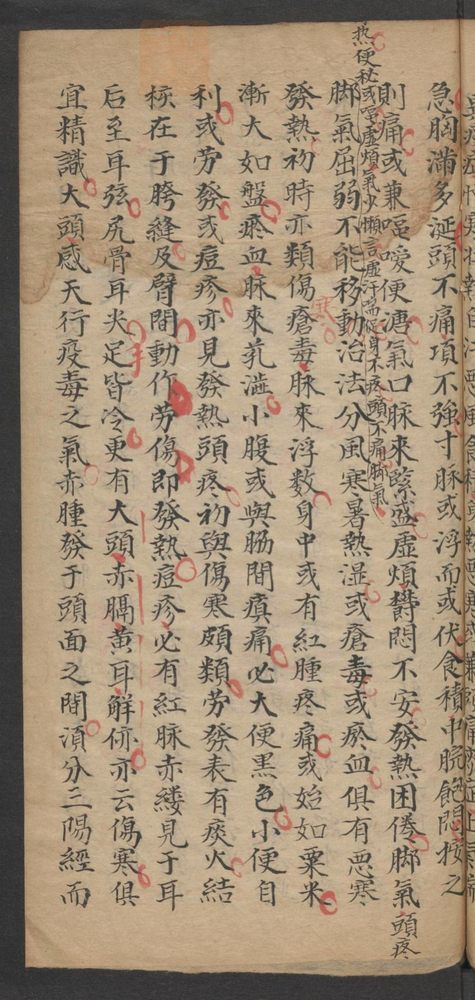 急胸滿多涎頭不痛項不強寸脉或浮而或伏食積中脘飽悶按之
則痛或兼嘔噯便溏氣口脉來緊盛虛煩欝悶不安發熱困倦脚氣頭疼
熱便秘或嘔虛煩氣少懶言虛汗喘促身不疼頭不痛脚氣
脚氣屈弱不能移動治法分風寒暑熱湿或瘡毒或瘀血俱有惡寒
發熱初時亦類傷寒瘡毒脉來浮数身中或有紅腫疼痛或始如粟米
漸大如盤瘀血脉來芤澁小腹或與肠間瘨痛必大便黒色小便自
利或劳發或痘疹亦見發熱頭疼初與傷寒頗類劳發表有痰火結
核在于胯縫及臂間動作劳傷即發熱痘疹必有紅脉赤缕見于耳
后至耳弦尻骨耳尖足皆冷更有大頭赤膈黃耳解㑊亦云傷寒俱
宜精識大頭感天行疫毒之氣赤腫發于頭面之間湏分三陽經而